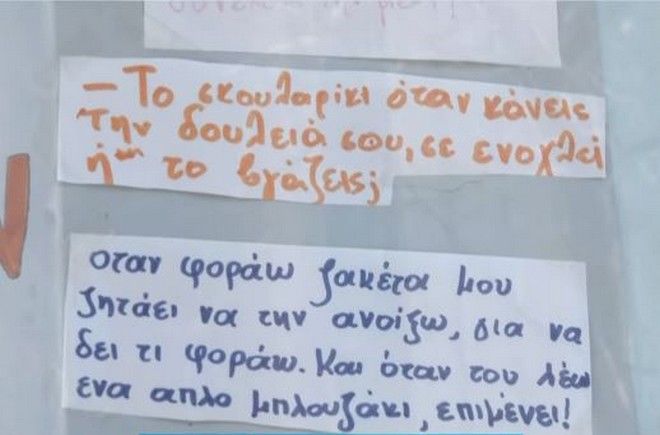 – Το σκουλαρίκι όταν κάνεις
την δουλειά σου, σε ενοχλεί
ή το βγάζεις;
οταν φοράω ζακέτα μου
ζητάει να την ανοίξω, για να
δει τι φοράω. Και όταν του λέω
ενα απλο μπλουζάκι, επιμένει!